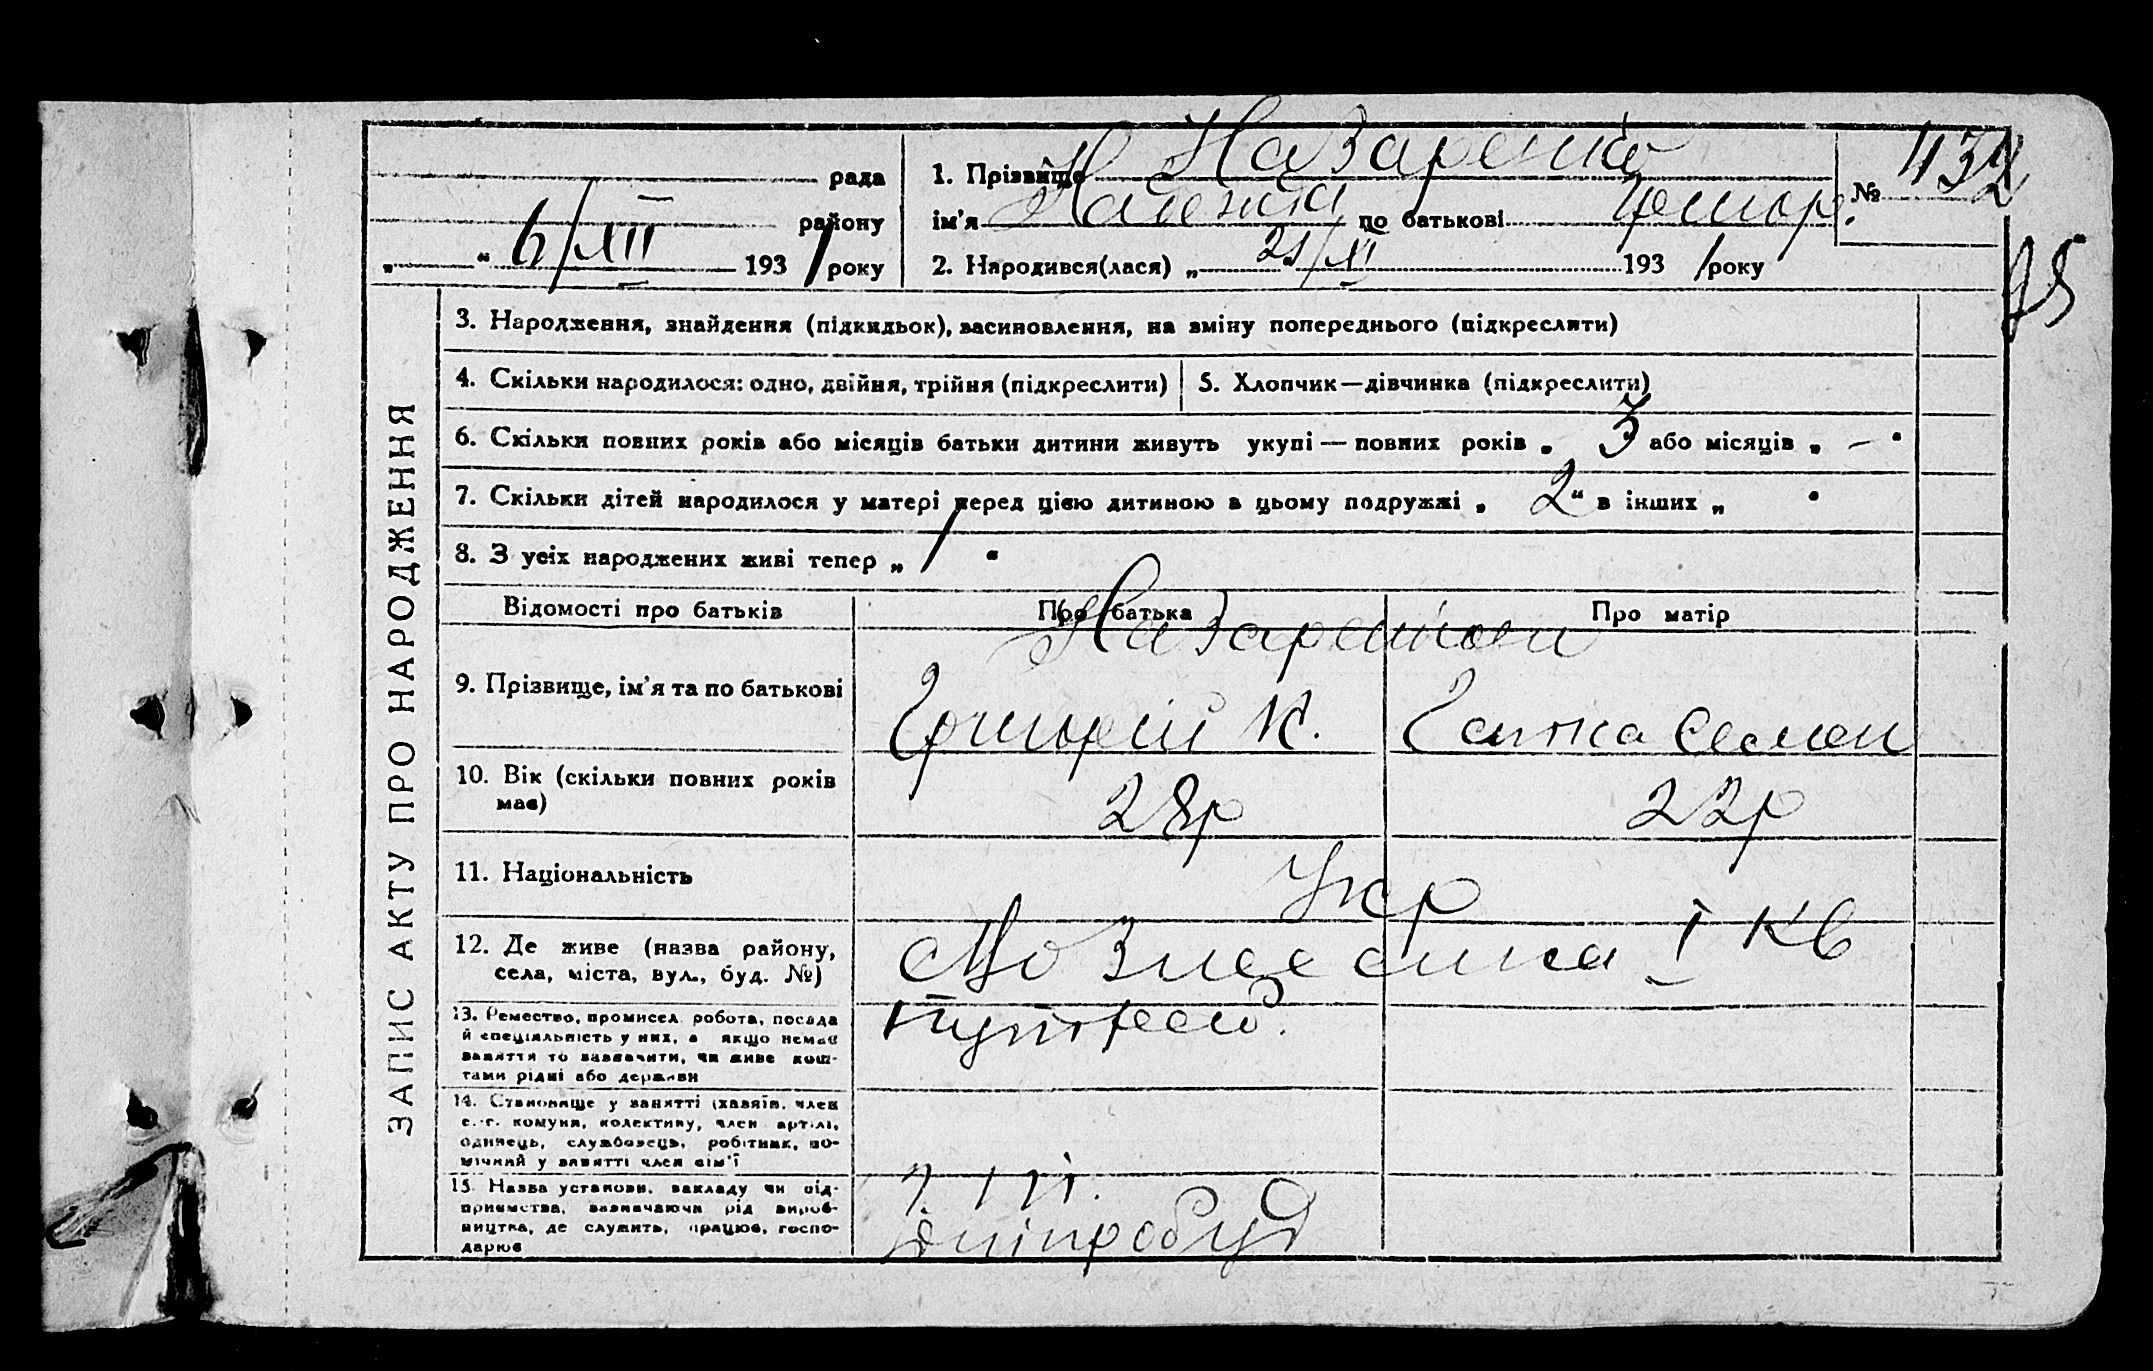 рада
району
„ “ 6/XII 1931 року
1. Прізвище Назаренко
ім'я по батькові Григор.
№ 432
2. Народився(лася) „ 21/XI 1931 року
95
ЗАПИС АКТУ ПРО НАРОДЖЕННЯ
3. Народження, знайдення (підкидьок), засиновлення, на зміну попереднього (підкреслити)
4. Скільки народилося: одно, двійня, трійня (підкреслити)
5. Хлопчик—дівчинка (підкреслити)
6. Скільки повних років або місяців батьки дитини живуть укупі — повних років „ 3 або місяців „ — “
7. Скільки дітей народилося у матері перед цією дитиною в цьому подружжі „ 2 “ в інших „ “
8. З усіх народжених живі тепер „ 1 “
Відомості про батьків
Про батька
Про матір
9. Прізвище, ім'я та по батькові
Назаренки
Григорій К.
Ганна Семен
10. Вік (скільки повних років
має)
28р
22р
11. Національність
Укр
12. Де живе (назва району,
села, міста, вул., буд. №)
Вознесенка I кв
13. Ремество, промисел, робота, посада
й спеціяльність у них, а якщо немає
заняття то зазначити, чи живе кош-
тами рідні або держави
14. Становище у занятті (хазяїн, член
с.-г. комуни, колективу, член артілі,
одинець, службовець, робітник, по-
мічний у занятті член сім'ї
15. Назва установи, закладу чи під-
приємства, зазначаючи рід вироб-
ництва, де служить, працює, госпо-
дарює
Дніпробуд